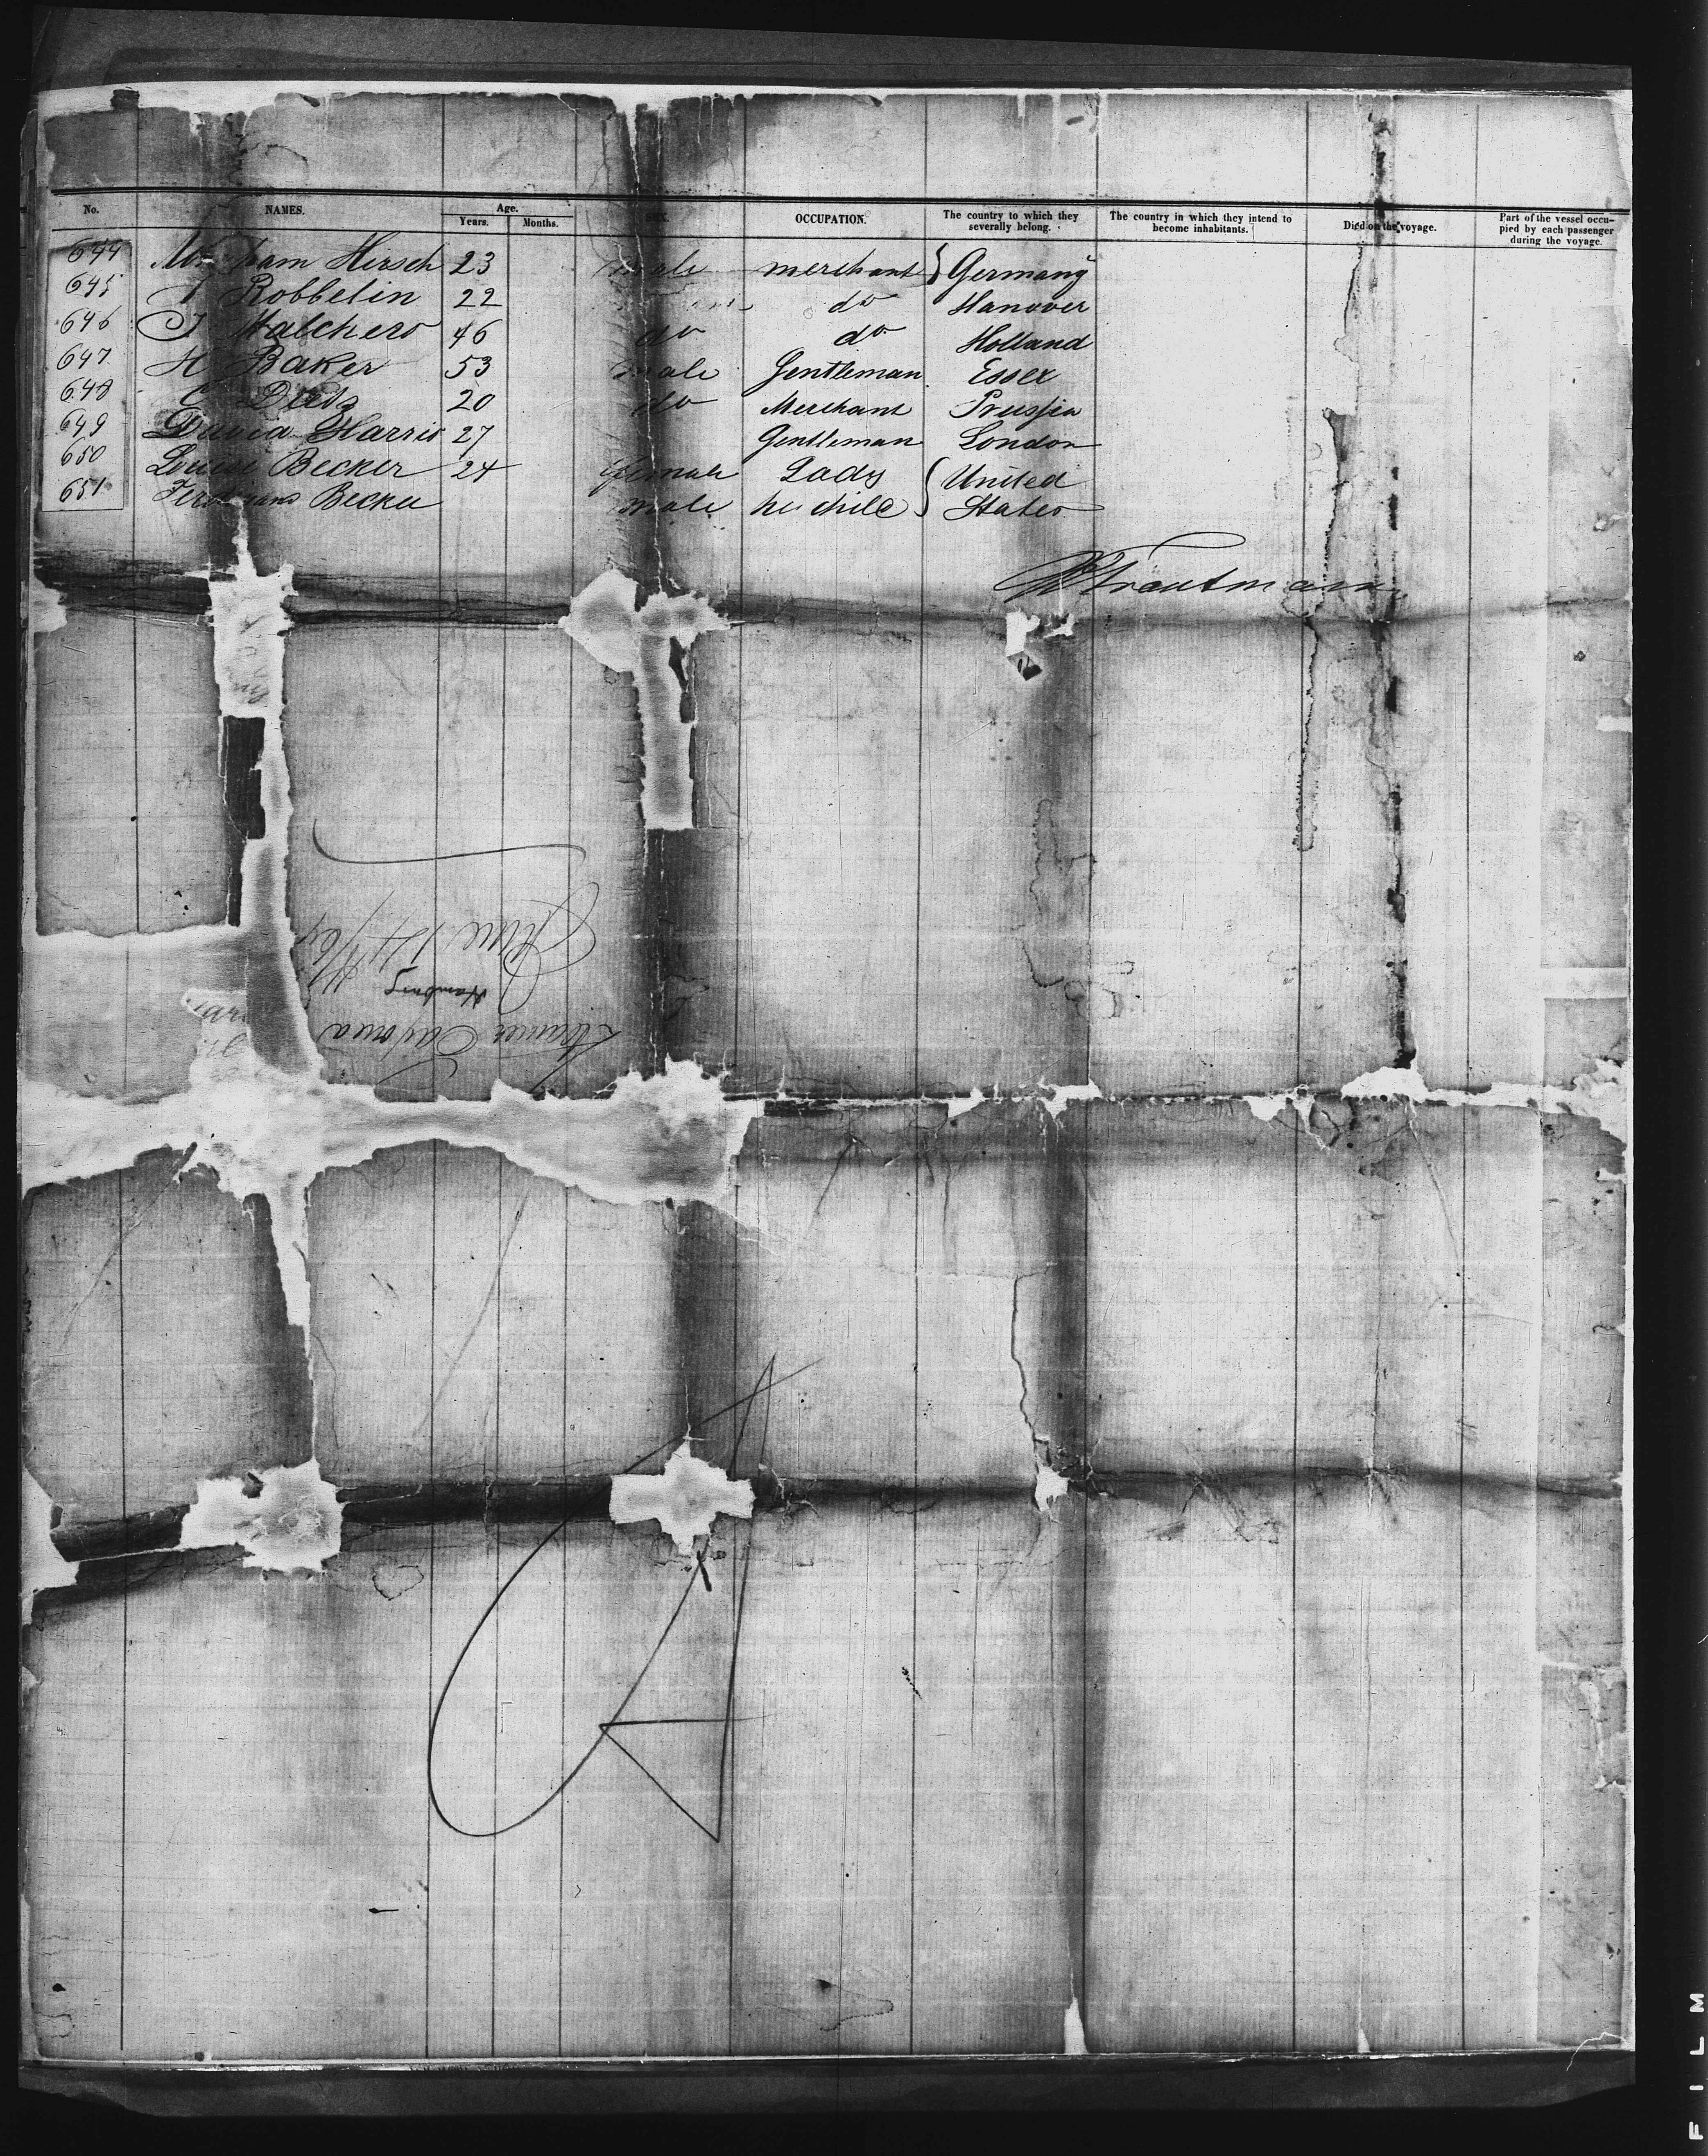 No. NAMES. Age. Years. Months. SEX. OCCUPATION. The country to which they severally belong. The country in which they intend to become inhabitants. Died on the voyage. Part of the vessel occupied by each passenger during the voyage.
644 Hirsch 23 male merchant Germany
645 Robbelin 22 do Hanover
646 J 46 do do Holland
647 H Baker 53 male Gentleman Essex
648 20 do Merchant Prussia
649 David Harris 27 Gentleman London
650 Louise Becker 24 female Lady United
651 Becker male her child States
Trautmann
Steamer Saxonia
Hamburg
June 14/64
FILM